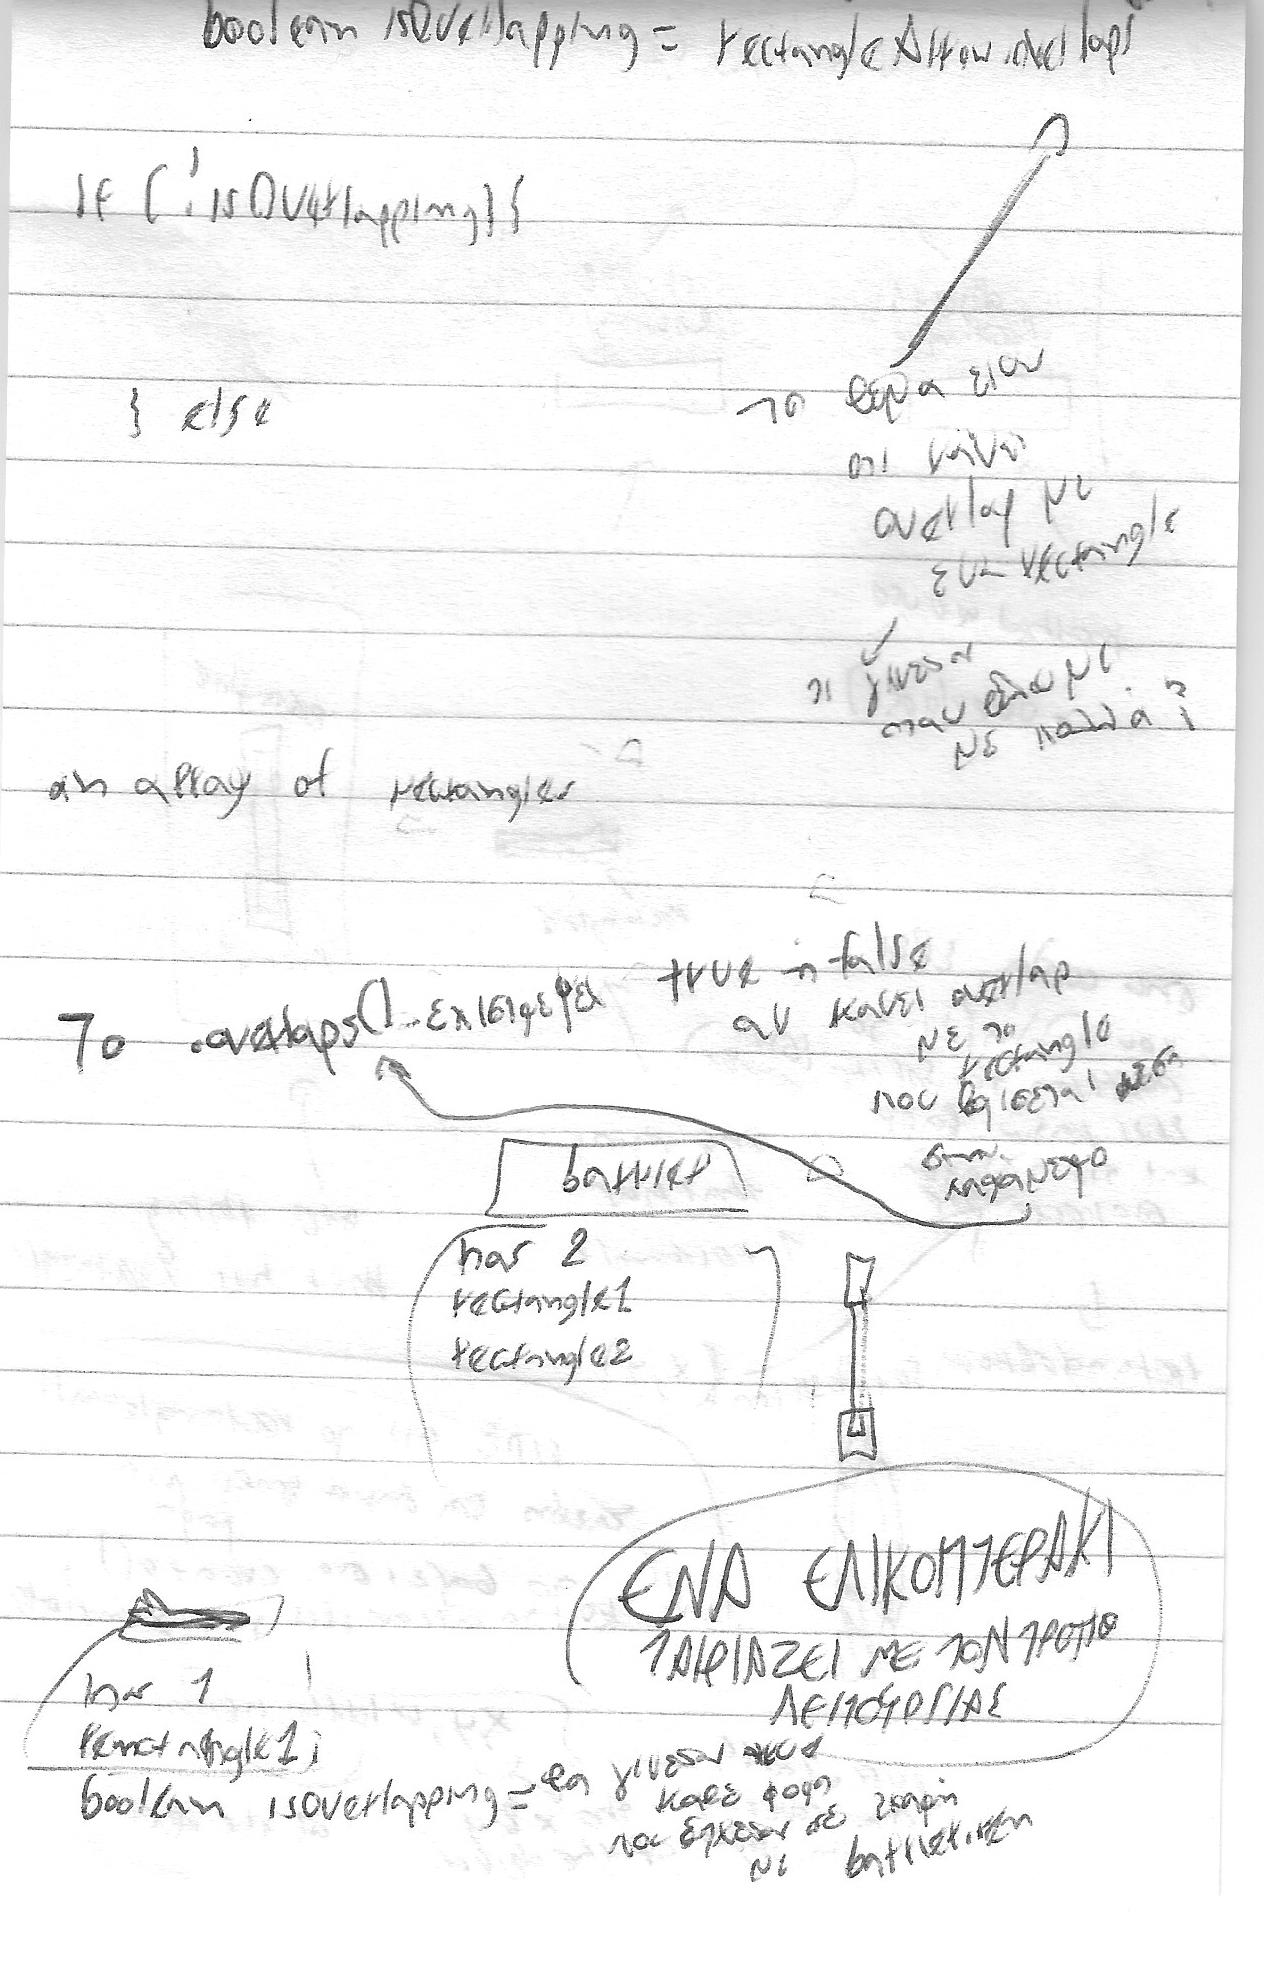 boolean isOverlapping = rectangleArrow.overlaps
if (!isOverlapping) {
} else
το θέμα ειναι
οτι κάνει
overlap με
ενα rectangle
τι γίνεται
οταν
με πολλά ?
an array of rectangles
Το .overlaps() επιστρεφει true η false
αν κανει overlap
με το
rectangle
που βρισκεται μεσα
στην
παρανεθρο
barrier
has 2
rectangle1
rectangle2
ΕΝΑ ΕΛΙΚΟΠΤΕΡΑΚΙ
ΤΑΙΡΙΑΖΕΙ ΜΕ ΤΟΝ ΤΡΟΠΟ
ΛΕΙΤΟΥΡΓΙΑΣ
has 1
rectangle1;
boolean isOverlapping = θα γινεται true
καθε φορα
που ερχεται σε επαφη
με